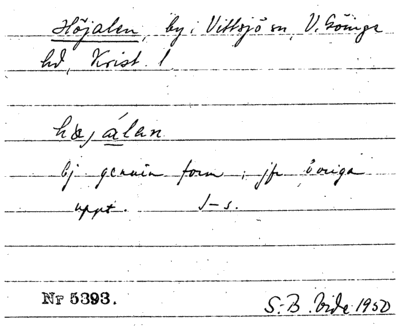 Höjalen, by i Vittsjö sn, V. Göinge
hd, Krist. l
hæjálan
Ej genuin form; jfr övriga
uppt. S-s.
Nr 5393.
S. B. Vide 1950